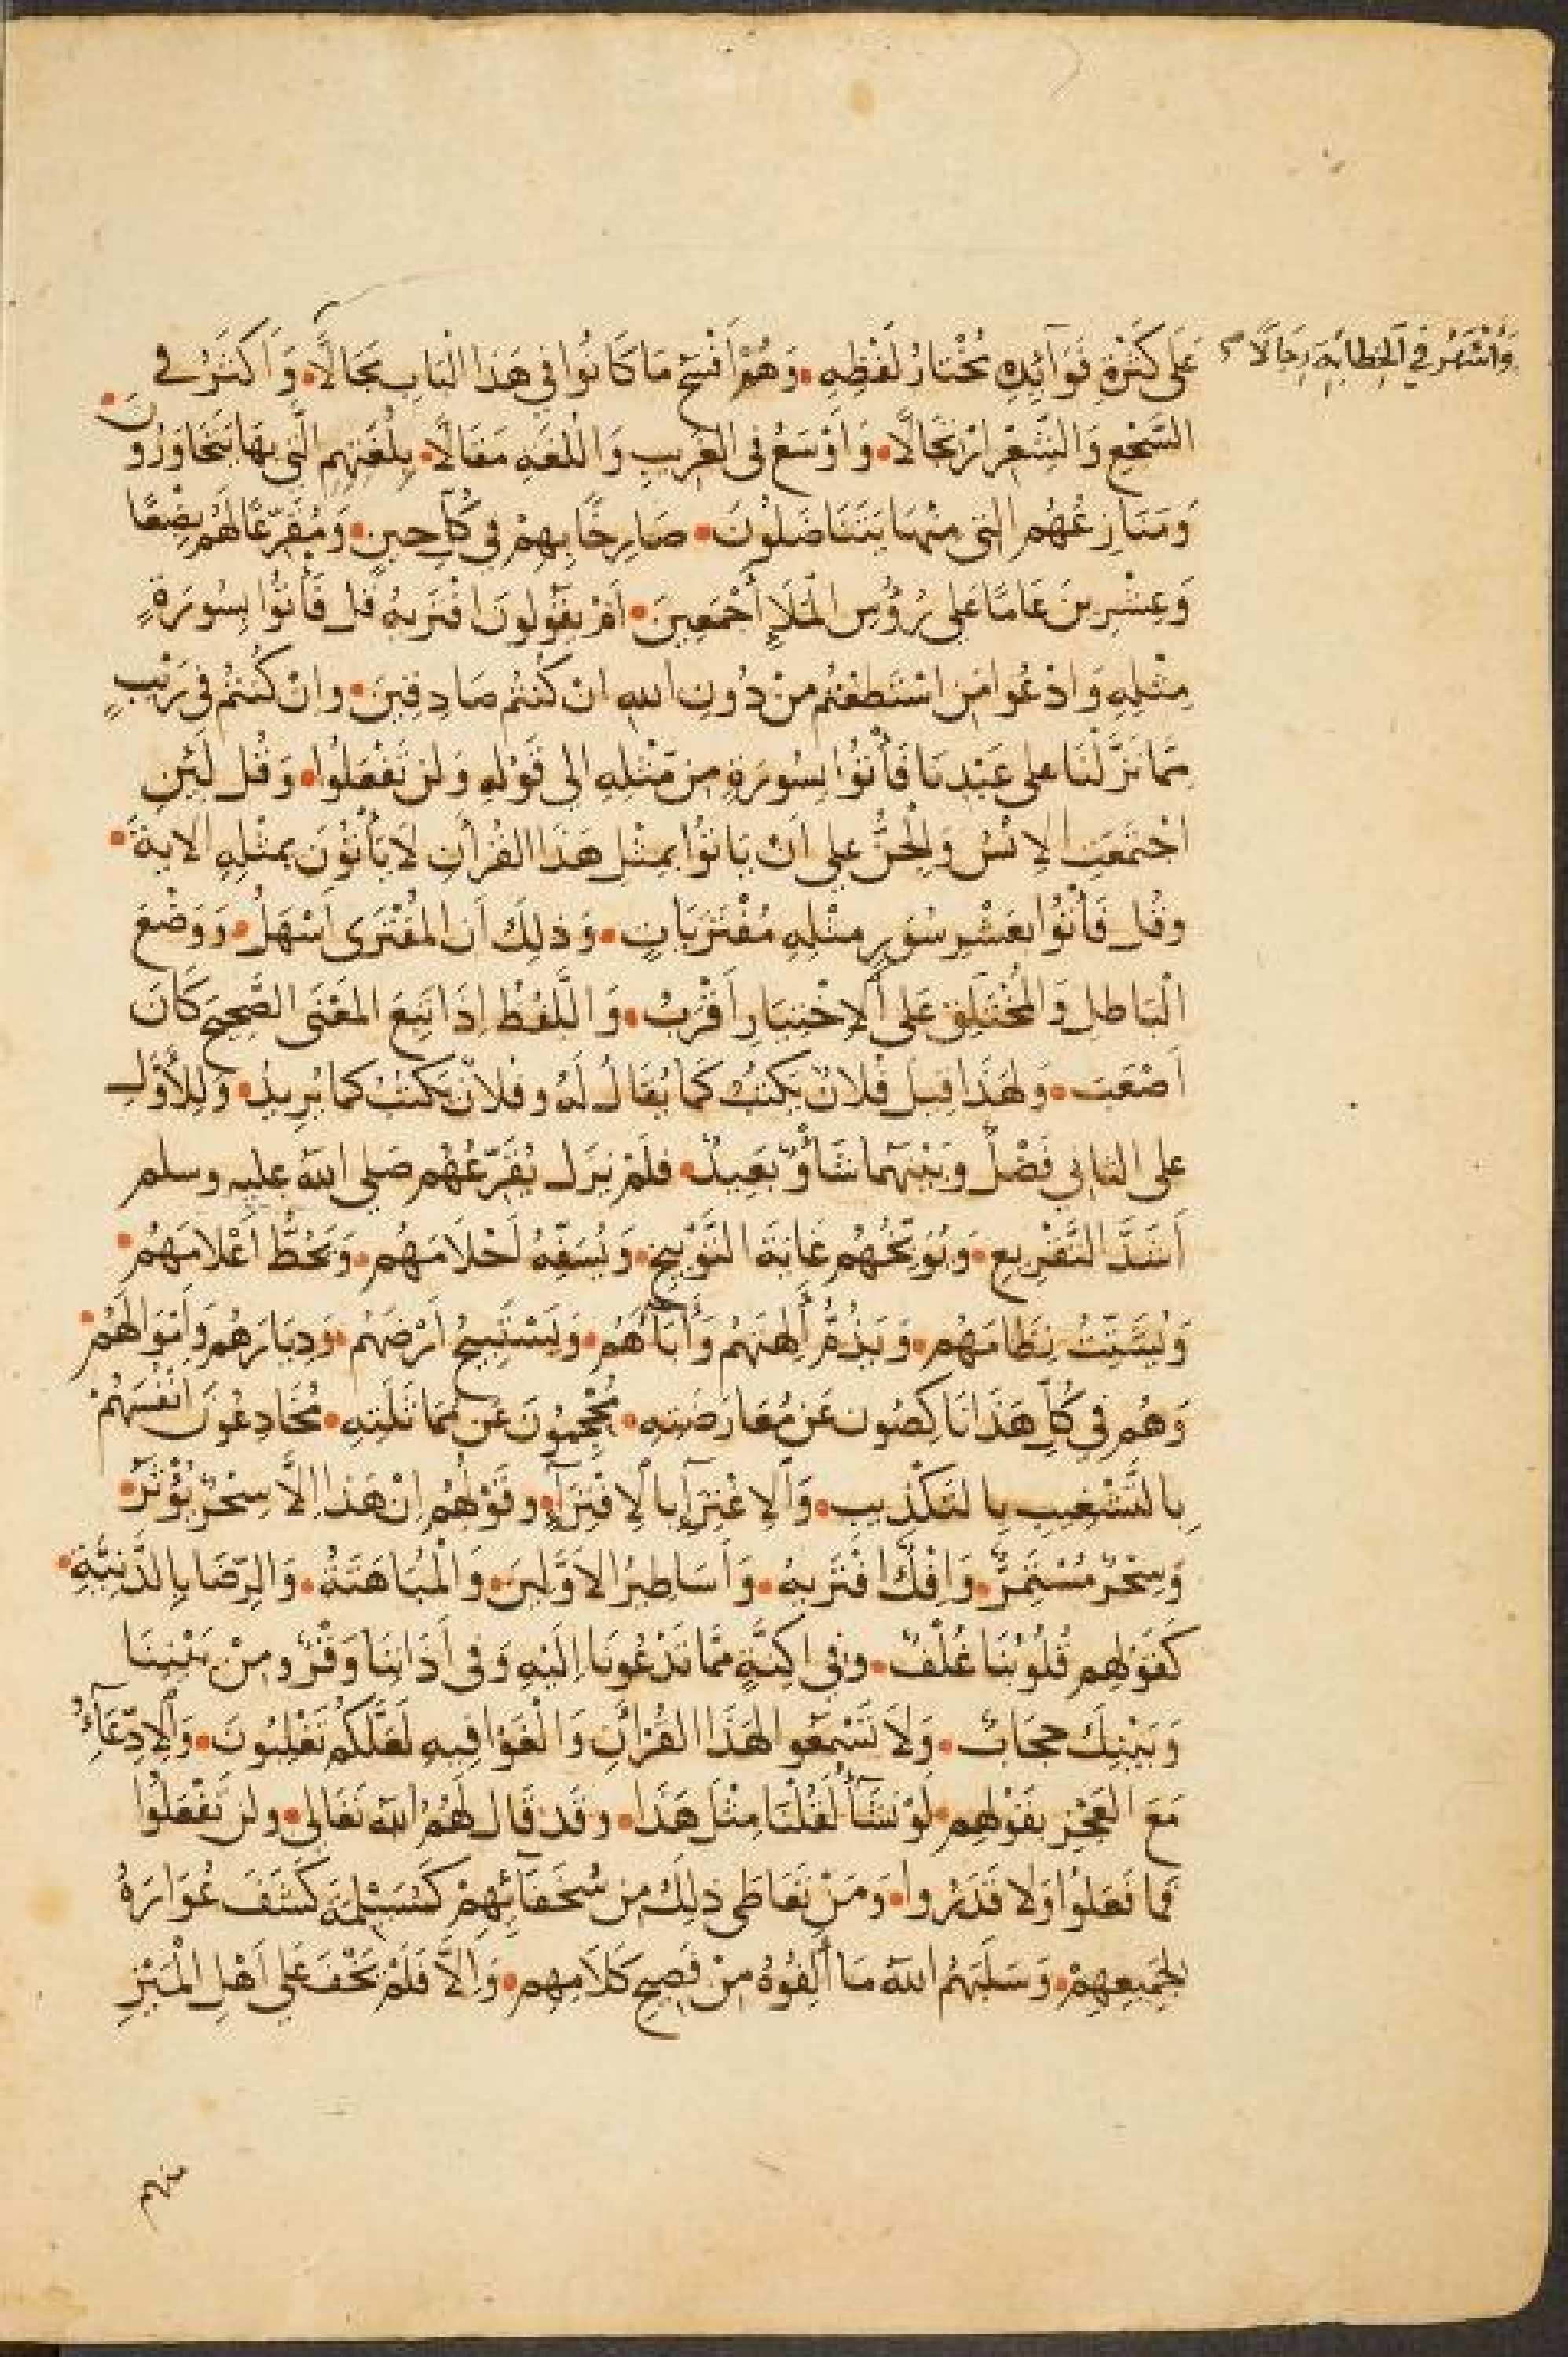 عَلَى كَثْرَةِ فَوَآئِدِهِ مُخْتَارُ لَفْظِهِ • وَهُمْ أَفْسَحُ مَا كَانُوا فِي هَذَا الْبَابِ مَجَالًا • وَأَكْثَرُ في
وَأَشْهَرُ فِي الْخِطَابَةِ رِجَالًا
السَّجْعِ وَالشِّعْرِ ارْتِجَالًا • وَأَوْسَعُ فِى الغَرِيبِ وَاللُّغَةِ مَقَالًا • بِلُغَتِهِم الَّتى بِهَا يَتَحَاوَرُونَ •
وَمَنَازِعُهُم التى مِنْهَا يَتَنَاضَلُونَ • صَارِخًا بِهِمْ فِى كُلِّ حِينٍ • وَمُقَرِّعًا لَهُمْ بِضْعًا
وَعِشْرِينَ عَامًا عَلى رُؤُسِ الْمَلَإِ أَجْمَعِينَ • اَمْ يَقُولُونَ افْتَريهُ قل فَأْتُوا بِسُورَةٍ
مِثْلِهِ وَادْعُوا مَنِ اسْتَطَعْتُم مِنْ دُونِ الله انْ كُنْتُم صَادِقِينَ • وانْ كُنْتُم فِى رَيْبٍ
مِمَّا نَزَّلْنَا على عَبْدِنَا فَأْتُوا بِسُورَةٍ مِن مِّثْلِهِ الى قَوْلِهِ وَلَن تَفْعَلُوا • وَقُل لَئِنِ
اجْتَمَعَتِ الاِنْسُ وَالْجِنُّ على اَنْ يَاتُوا بِمِثْلِ هَذَا القُرْأَنِ لَا يَأْتُوْنَ بِمثْلِهِ الايةَ •
وقُل فَأْتُوْا بعَشْرِ سُوَرٍ مِثْلِهِ مُفْتَرَيَاتٍ • وَذلِكَ اَن المُفْتَرَى اَسْهَلُ • وَوَضْعَ
الْبَاطِلِ وَالمُخْتَلَقِ عَلى اَلاِخْتِيَارِ اَقْرَبُ • وَاللَّفْظُ اِذَا تَبِعَ المَعْنَى الصَّحِيحَ كَانَ
اَصْعَبَ • وَلهَذَا قِيلَ فُلَانٌ يَكْتُبُ كَمَا يُقَالُ لَهُ وفُلَانٌ يَكْتُبُ كما يُرِيدُ • وَلِلْأَوَّلِ
على الثاني فَضْلٌ وَبَيْنَهُمَا شَأْوٌ بَعِيدٌ • فلَمْ يَزَل يُقَرِّعُهُم صَلى الله عليه وسلم
اَشَدَّ التَّقْرِيعِ • وَيُوَبِّخُهُم غَايَةَ التَّوْبِيخِ • وَيُسَفِّهُ اَحْلَامَهُم • وَيَحُطُّ اَعْلَامَهُم •
وَيُشَتِّتُ نِظَامَهُم • وَيَذُمُّ أَلِهَتَهُمْ وَأَبَآءَهُم • وَيَسْتَبِيحُ اَرْضَهُم • وَدِيَارَهُم وَاَمْوَالَهُمْ •
وَهُم فِي كُلِّ هَذَا نَاكِصُون عَنْ مُعَارَضَتِهِ • مُحْجِمُونَ عَن مُمَاثَلَتِهِ • مُخَادِعُونَ اَنْفُسَهُمْ
بِالتَّشْغِيبِ بِالتَّكْذِيبِ • وَاَلاِغْتِرَآءِ بِاَلاِفْتِرَآءِ • وقَوْلُهُم اِنْ هَذَا اِلَّا سِحْرٌ يُؤْثَرُ •
وَسِحْرٌ مُسْتَمِرٌّ • وَاِفْكٌ افْتَريهُ • وَاَسَاطِيرُ الاَوَّلِينَ • وَالْمُبَاهَتَةُ • وَالرِّضَا بِالدَّنِيَّةِ •
كَقَوْلِهِم قُلُوْبُنَا غُلْفٌ • وفِى اَكِنَّةٍ مِمَّا تَدْعُونَا اِلَيْهِ وَفى اَذَانِنَا وَقْرٌ ومِنْ بَيْنِنَا
وَبَيْنِكَ حِجَابٌ • وَلَا تَسْمَعُوا لِهَذَا القُرْاَنِ وَالْغَوْا فِيهِ لَعَلَّكُم تَغْلِبُونَ • وَاَلاِدِّعَآءُ
مَعَ العَجْزِ بِقَوْلِهِم • لَوْ نَشَآءُ لَقُلْنَا مِثْلَ هَذَا • وقَد قَال لَهُمُ الله تَعَالى • ولَن تَفْعَلُوْا
فَمَا فَعَلُوْا وَلا قَدَرُوا • وَمَنْ تَعَاطَى ذلِكَ مِن سُخَفَآئِهِمْ كَمُسَيْلِمَةَ كَشَفَ عُوَارَهُ
لِجَمِيعِهِمْ • وَسَلَبَهُم الله مَا اَلِفُوْهُ مِنْ فَصِيحِ كَلَامِهِم • وَاِلَّا فَلَمْ يَخْفَ عَلى اَهْلِ الْمَيْزِ
منهم